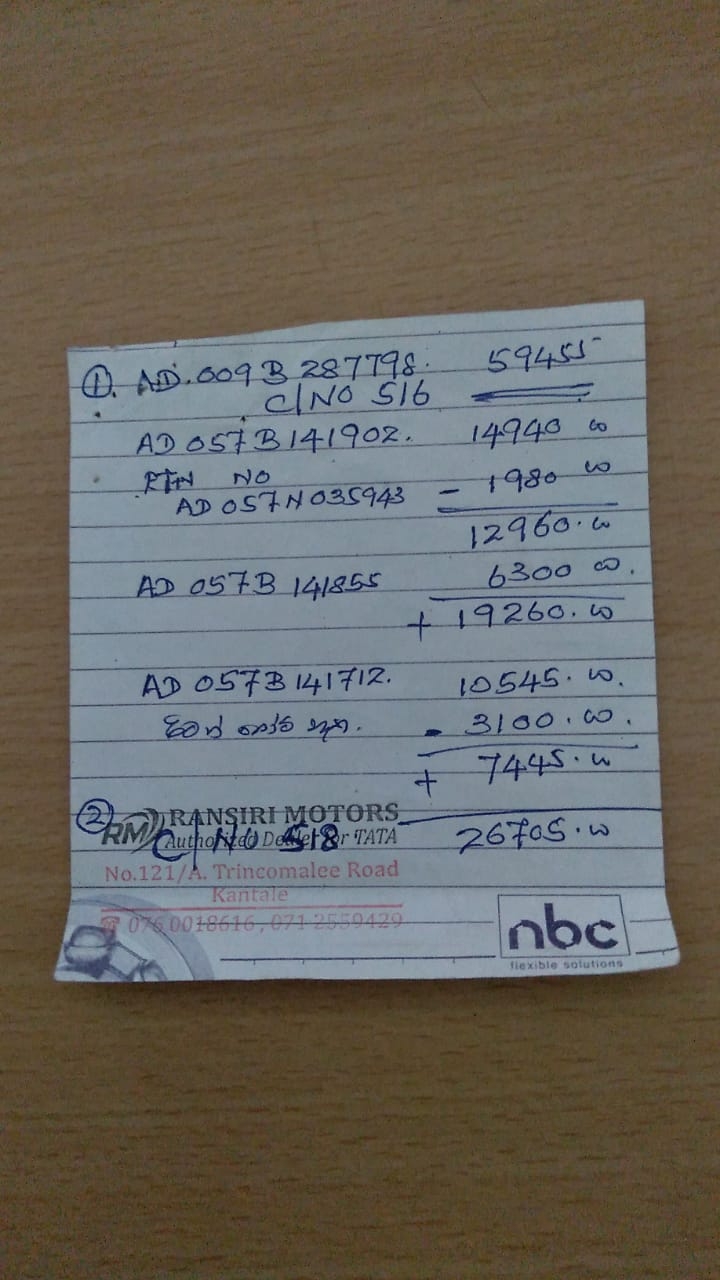 ①. AD.009B 287798. 59455
C/NO 516
AD 057B141902. 14940 00
RTN NO
AD 057N035943 - 1980 00
12960.00
AD 057B 141855 6300 00.
+ 19260.00
AD 057B141712. 10545.00.
- 3100.00.
+ 7445.00
② C/ No 518 26705.00
RM RANSIRI MOTORS
Authorized Dealer for TATA
No.121/A. Trincomalee Road
Kantale
☎ 076 0018616, 071 2559429
nbc
flexible solutions